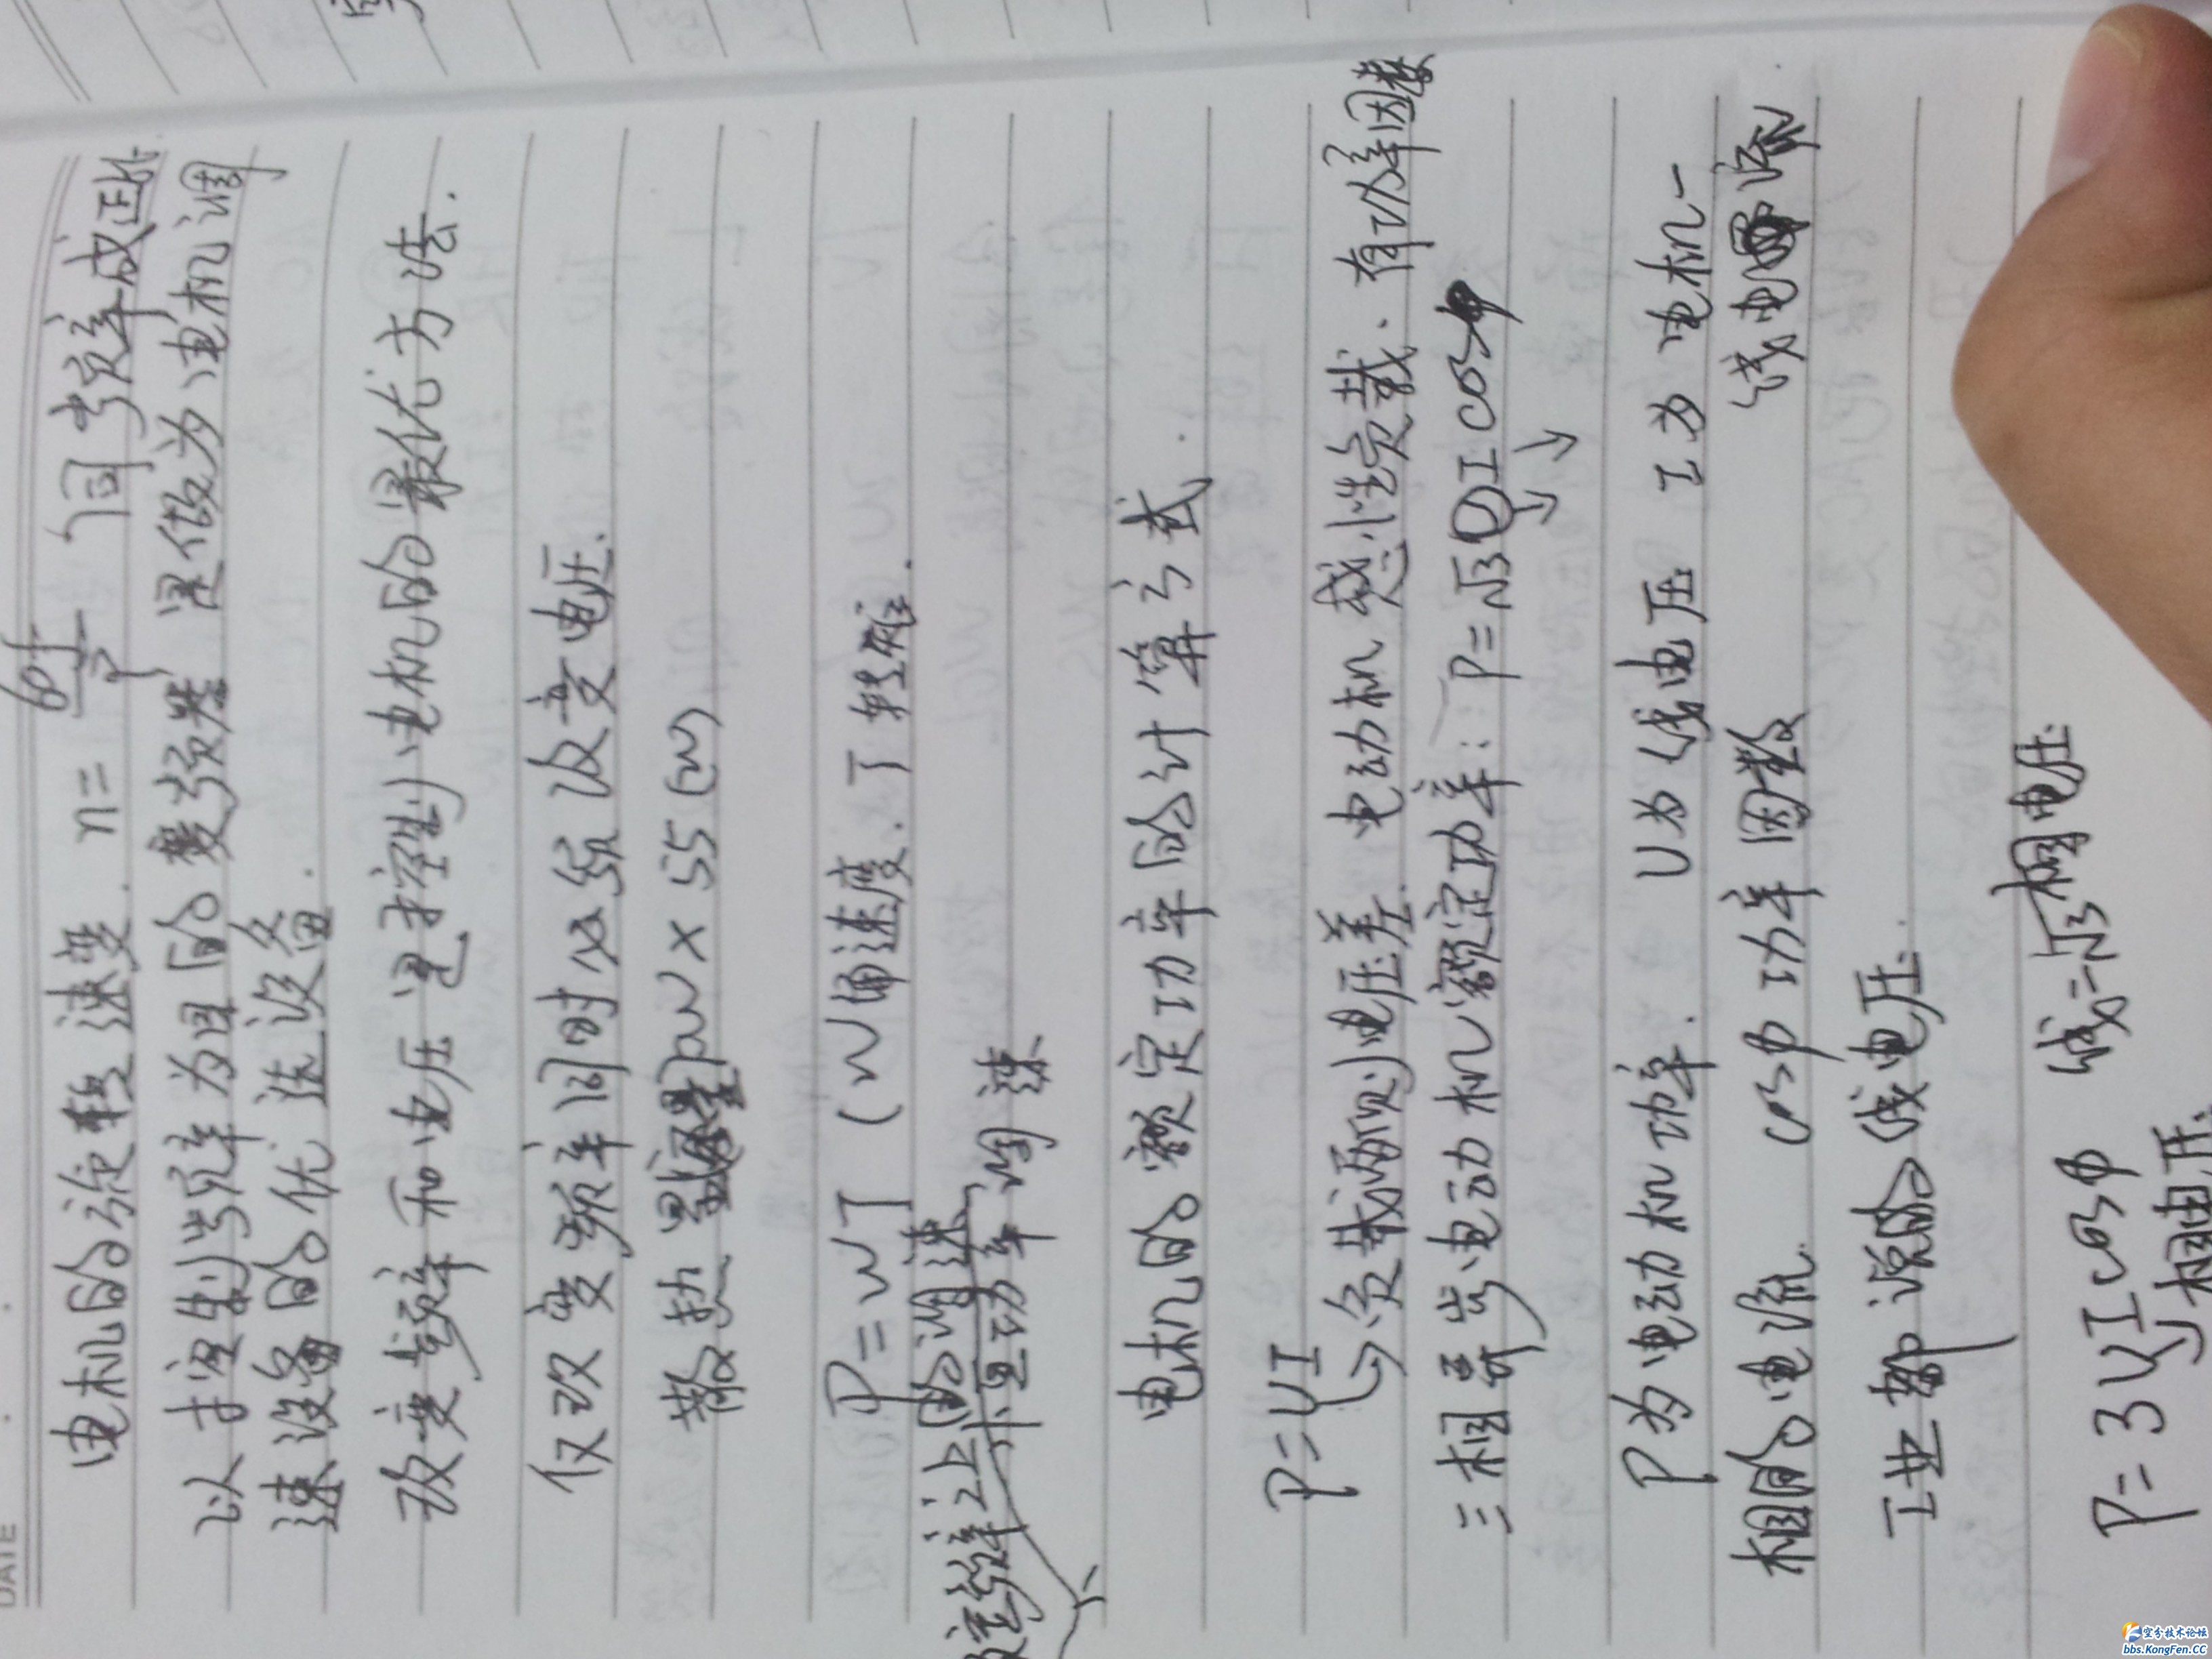 DATE
电机的旋转速度. n= 60f/P 同频率成正比.
以控制频率为目的变频器 是做为电机调
速设备的优选设备.
改变频率和电压是控制电机的最优方法.
仅改变频率同时必须改变电压.
散热量 PW×55(W)
P=WT (W角速度. T转矩.
变频率上的调速
恒功率调速
电机的额定功率的计算方式.
P=UI
负载两侧电压差. 电动机感性负载、有功率因数
三相异步电动机额定功率: P=√3UIcosφ
P为电动机功率. U为线电压 I为电机一
相的电流. cosφ功率因数 线电流.
工业都源的线电压.
P=3UIcosφ 线=√3相电压.
相电压.
空分技术论坛
bbs.KongFen.CC